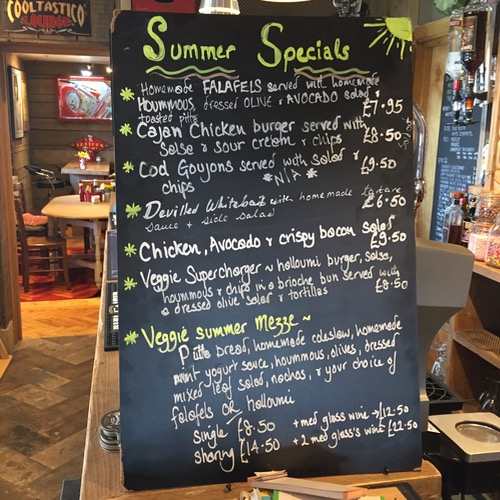 COOLTASTICO
LOUNGE
Summer Specials
Homemade FALAFELS served with homemade
HOUMMOUS, dressed OLIVE & AVOCADO salad
toasted pitta £7.95
Cajan Chicken burger served with
salsa & sour cream & chips £8.50
Cod Goujons served with salad &
chips *N/A* £9.50
Devilled Whitebait with homemade tartare
sauce + side salad £6.50
Chicken, Avocado & crispy bacon salad
£9.50
Veggie Supercharger ~ holloumi burger, salsa,
hoummous & chips in a brioche bun served with
a dressed olive salad & tortillas £8.50
Veggie summer mezze ~
Pitta bread, homemade coleslow, homemade
mint yogurt sauce, hoummous, olives, dressed
mixed leaf salad, nachos, & your choice of
falafels OR holloumi
single £8.50 + med glass wine → £12.50
sharing £14.50 + 2 med glass's wine £22.50